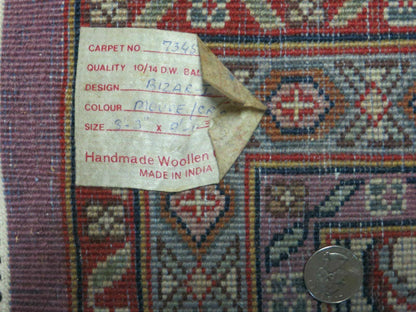 CARPET NO. 7348
QUALITY 10/14 D.W. BAL
DESIGN BIZAR
COLOUR MOUVE/CR
SIZE
Handmade Woollen
MADE IN INDIA